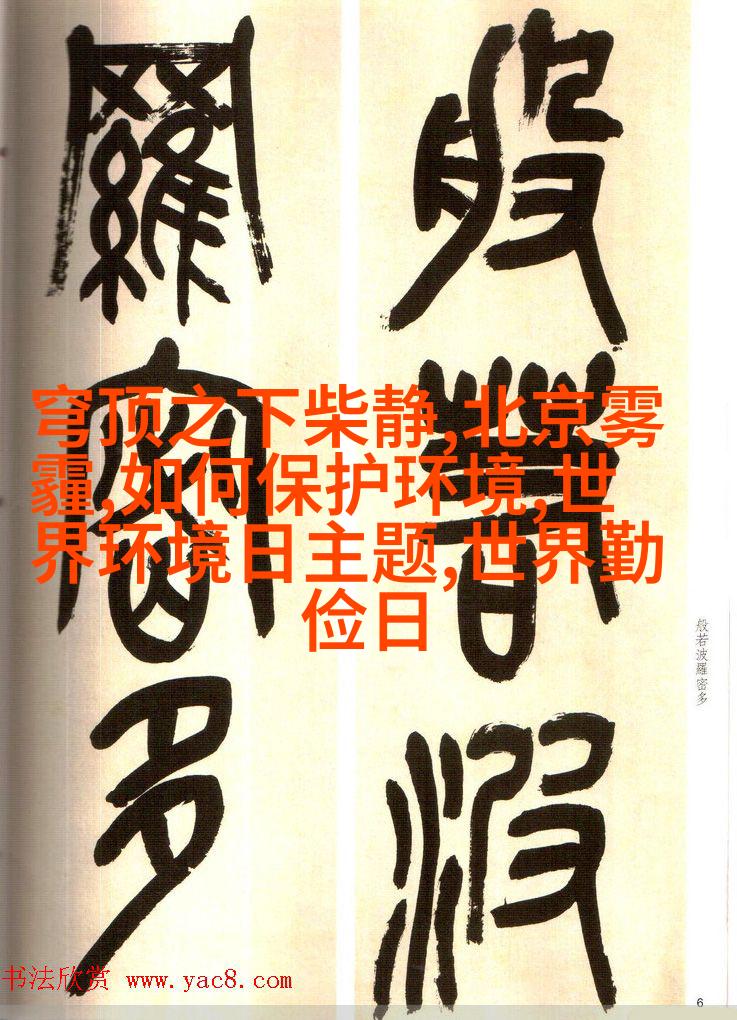 般若波
羅密多
穹顶之下柴静,北京雾
霾,如何保护环境,世
界环境日主题,世界勤
俭日
般若波羅密多
书法欣赏 www.yac8.com
6